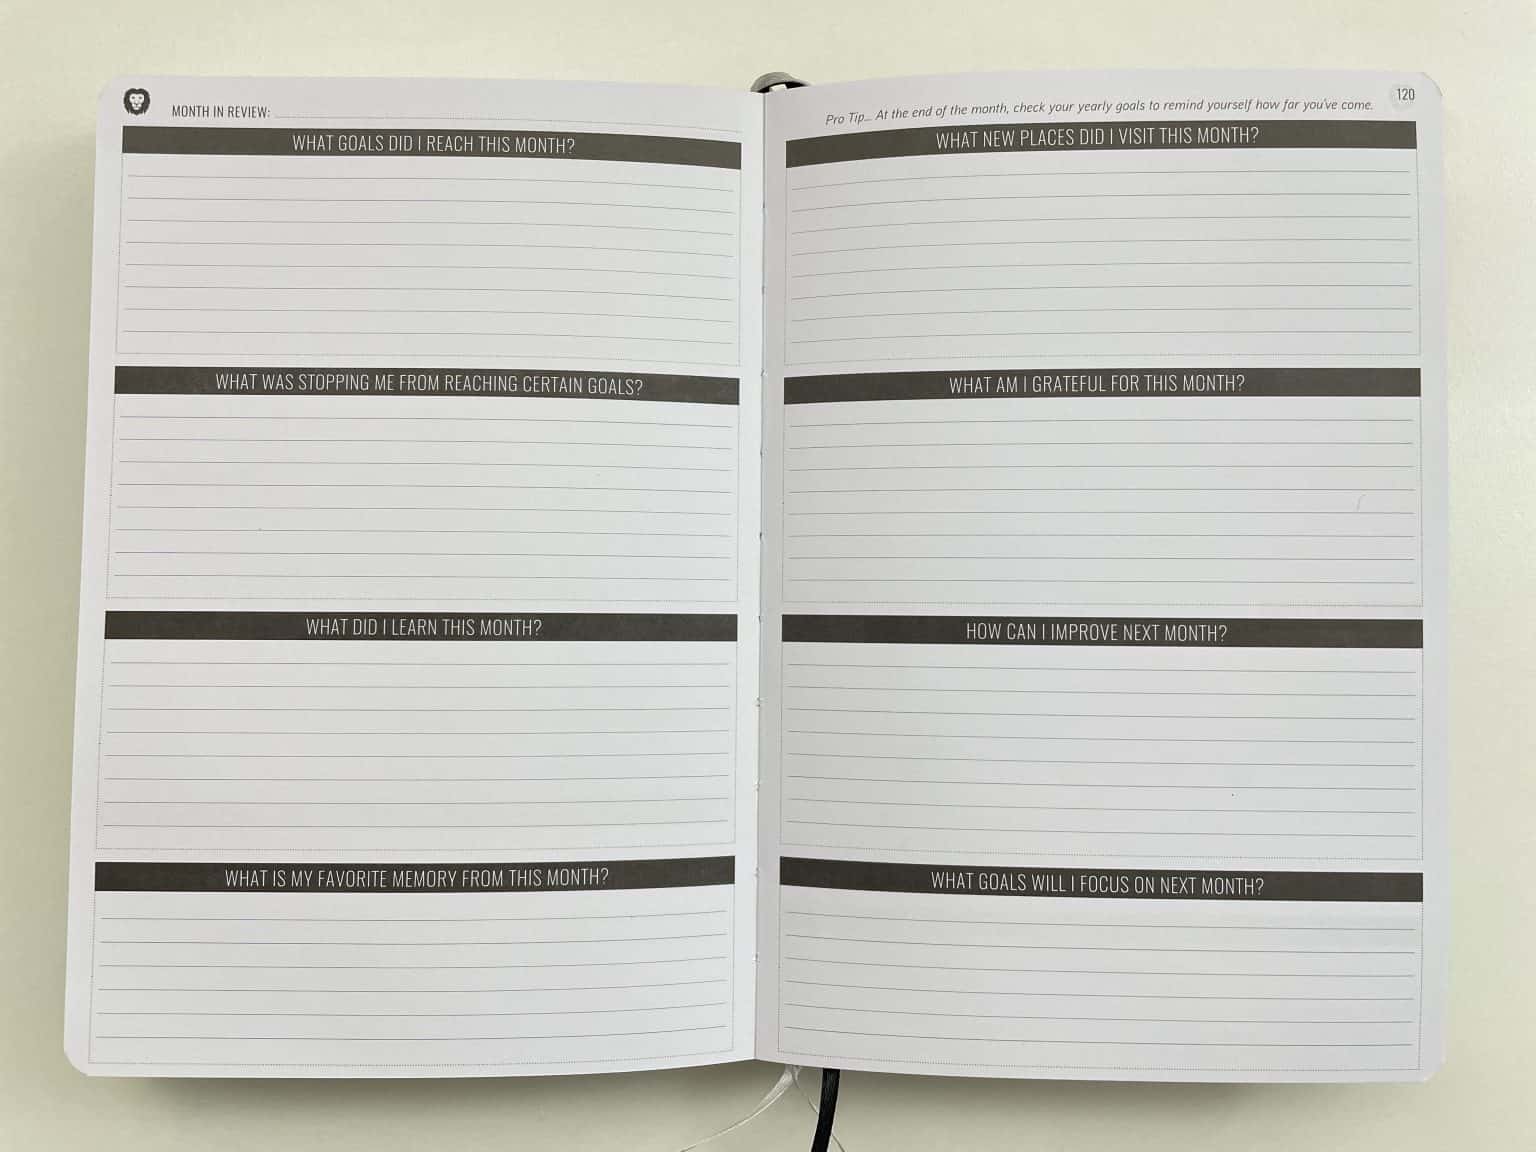 MONTH IN REVIEW:
WHAT GOALS DID I REACH THIS MONTH?
WHAT WAS STOPPING ME FROM REACHING CERTAIN GOALS?
WHAT DID I LEARN THIS MONTH?
WHAT IS MY FAVORITE MEMORY FROM THIS MONTH?
Pro Tip... At the end of the month, check your yearly goals to remind yourself how far you've come.
120
WHAT NEW PLACES DID I VISIT THIS MONTH?
WHAT AM I GRATEFUL FOR THIS MONTH?
HOW CAN I IMPROVE NEXT MONTH?
WHAT GOALS WILL I FOCUS ON NEXT MONTH?